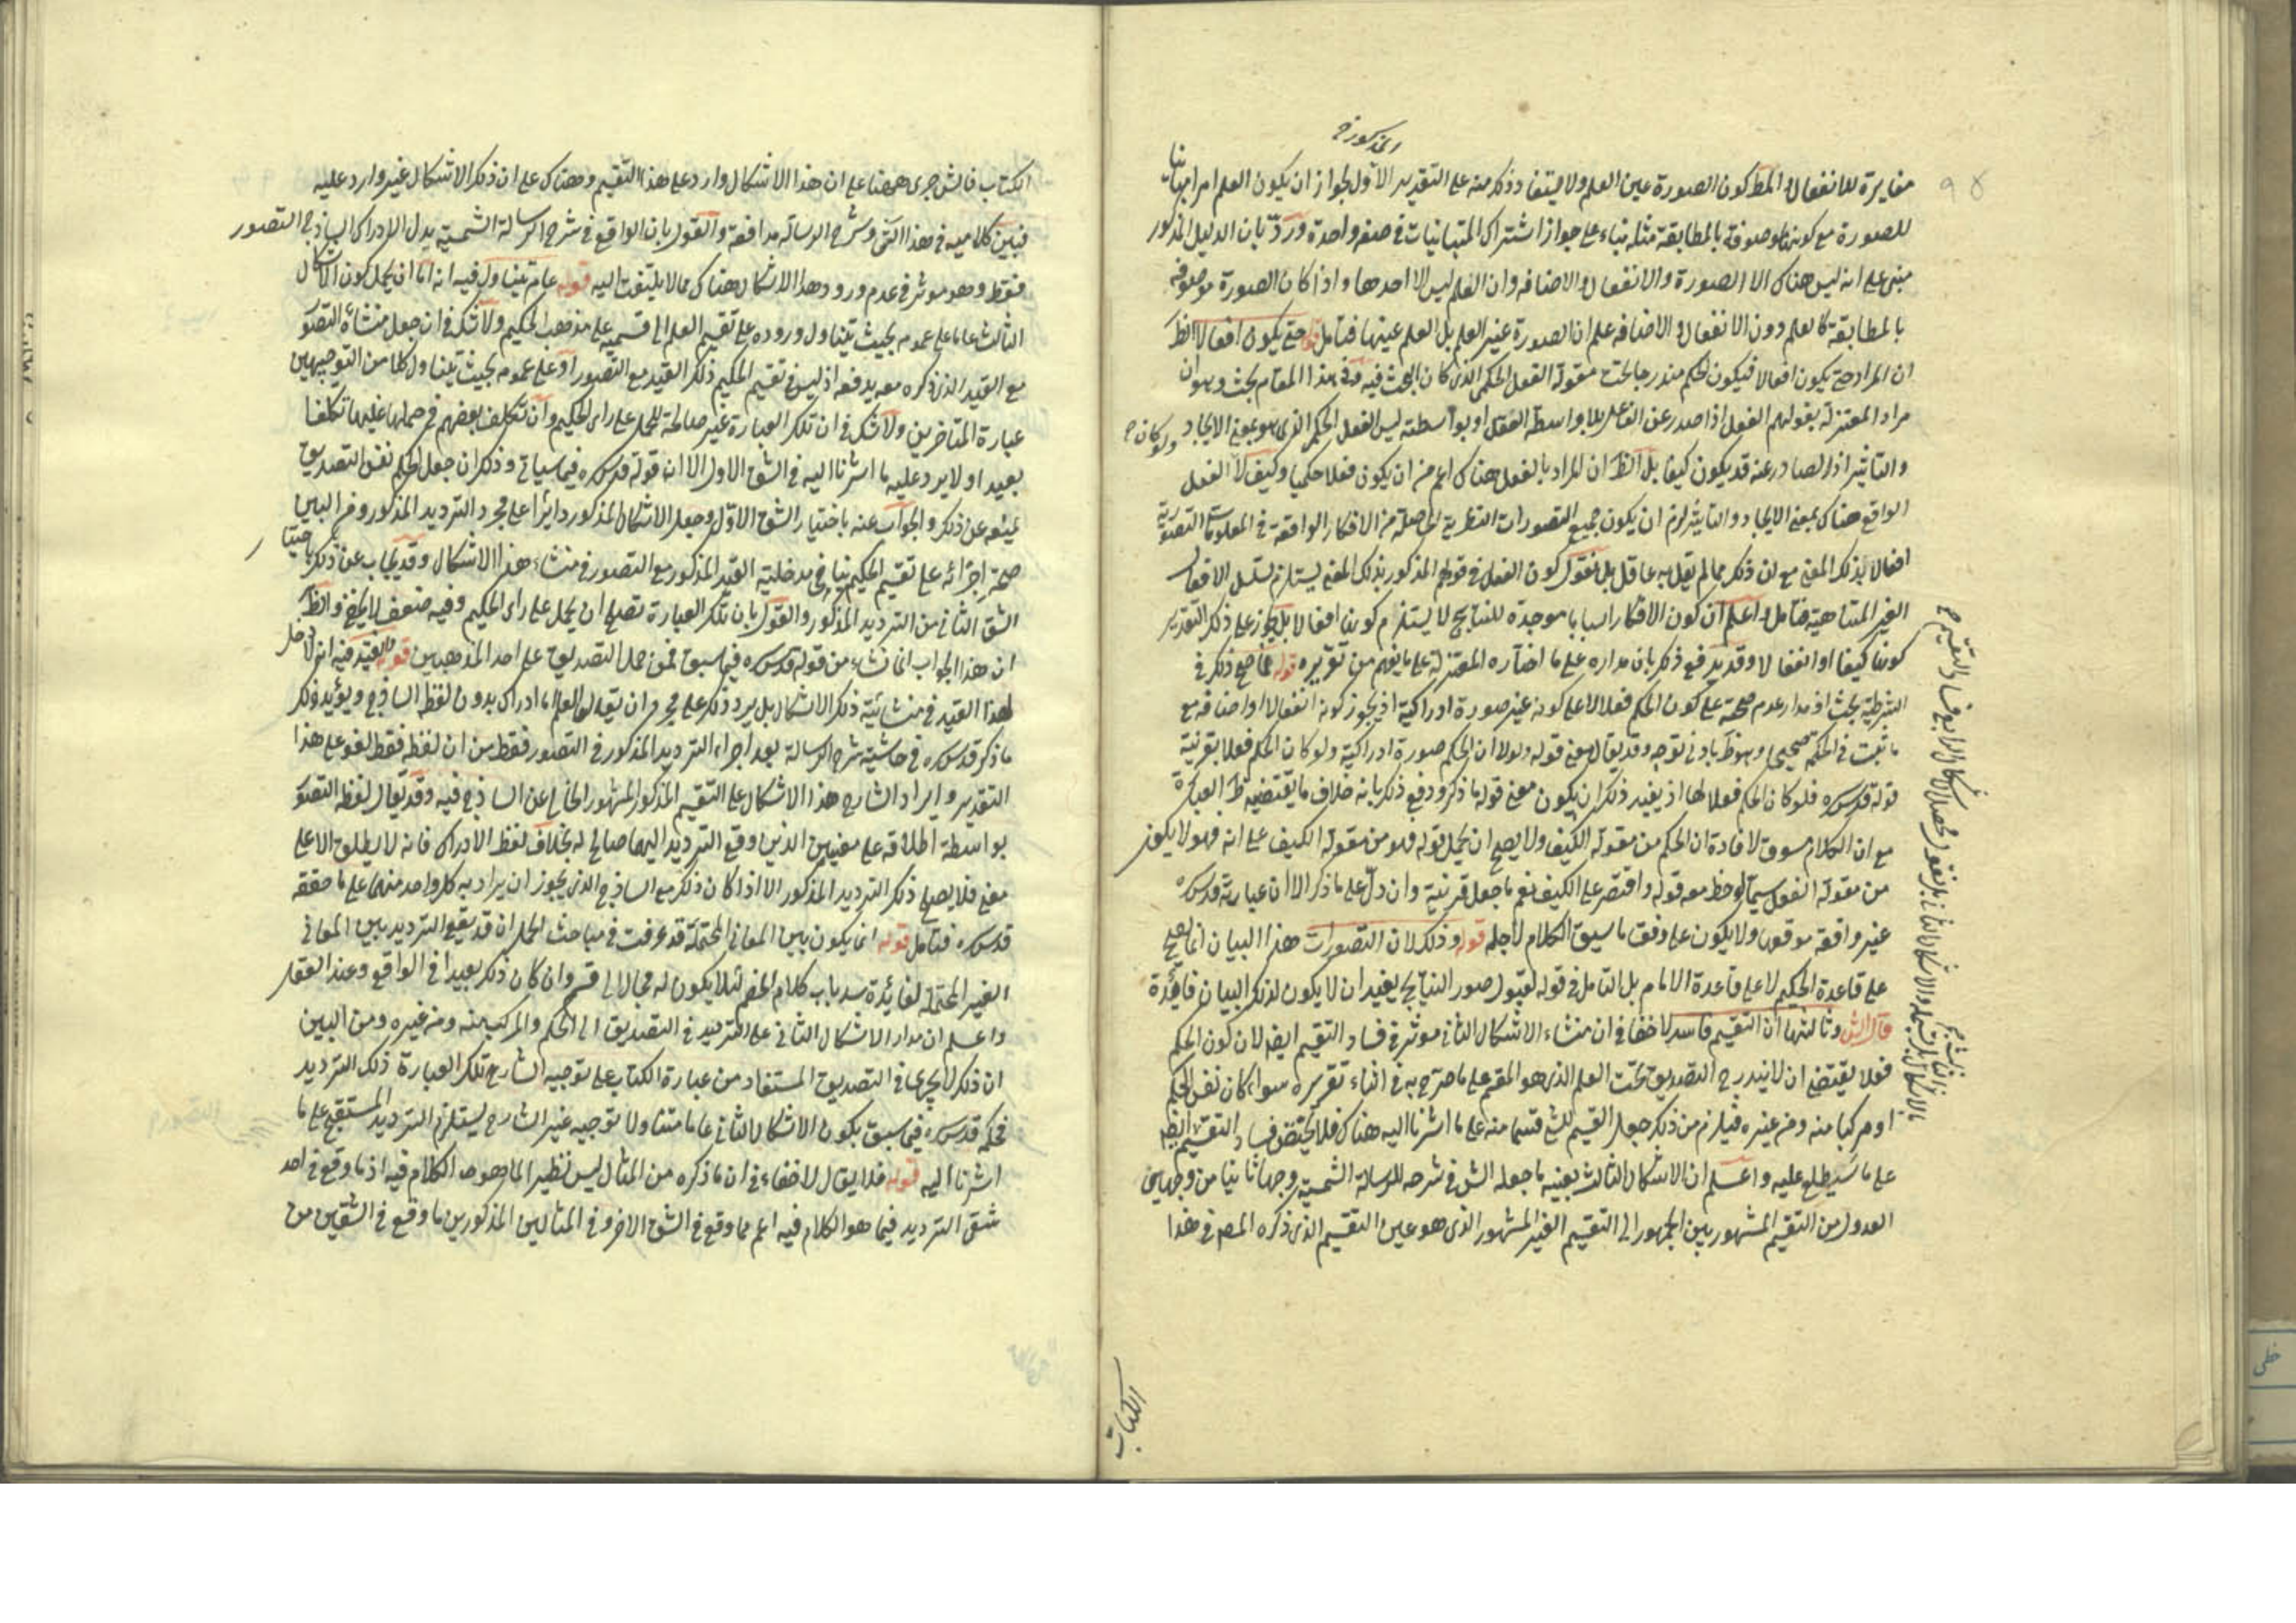 المذكورة
مغايرة للانفعال والمط كون الصورة عين العلم ولا يستفاد ذكر منه على التقدير الاول لجواز ان يكون العلم امرا مباينا
للصورة مع كونها موصوفة بالمطابقة مثله بناء على جواز اشتراك المتباينات في صفة واحدة ورد بان الدليل المذكور
مبنى على انه ليس هناك الا الصورة والانفعال والاضافة وان العلم ليس الا احدها واذا كان الصورة موصوفة
بالمطابقة كالعلم دون الانفعال والاضافة علم ان الصورة غير العلم بل العلم عينها فتامل قوله حتى يكون افعالا الظ
ان المراد حتى يكون افعالا فيكون الحكم مندرجا تحت مقولة الفعل الحكمي الذي كان البحث فيه وفي هذا المقام بحث وهو ان
مراد المعتزلة بقولهم الفعل اذا صدر عن الفاعل بلا واسطة الفعل او بواسطته ليس الفعل الحكمي الذي هو بمعنى الايجاد ولو كان
والتاثير اذ الصادر عنه قد يكون كيفا بل الظ ان المراد بالفعل هناك اعم من ان يكون فعلا حكميا وكيف لا الفعل
الواقع هناك بمعنى الايجاد والتاثير لزم ان يكون جميع التصورات النظرية الحاصلة من الافكار الواقعة في المعلومات التصورية
افعالا بذلك المعنى مع ان ذكر مما لم يقل به عاقل بل نقول كون الفعل في قولهم المذكور بذلك المعنى يستلزم تسلسل الافعال
الغير المتناهية فتامل واعلم ان كون الافكار اسبابا موجدة للنتايج لا يستلزم كونها افعالا بل يجوز على ذكر التقدير
كونها كيفا او انفعالا وقد يدفع ذكر بان مداره على ما اختاره المعتزلة على ما يفهم من تقريره قوله مما صح ذكر في
الشرطية بحث اذ مدار عدم صحته على كون الحكم فعلا لا على كونه غير صورة ادراكية اذ يجوز كونه انفعالا او اضافة مع
ما ثبت في الحكمة صحيحي وهو ظ باد في توجه وقد يقال معنى قوله ولولا ان الحكم صورة ادراكية ولو كان الحكم فعلا بقرينة
قوله قدس سره فلو كان الحكم فعلا لها اذ يفيد ذكر ان يكون معنى قوله ما ذكر ودفع ذكر بانه خلاف ما يقتضيه ظ العبارة
مع ان الكلام مسوق لافادة ان الحكم من مقولة الكيف ولا يصح ان يحمل قوله فهو من مقولة الكيف على انه فهو لا يكون
من مقولة الفعل سيما لوحظ معه قوله واقتصر على الكيف نعم ما جعل قرينة وان دل على ما ذكر الا ان عبارته قدس سره
غير واقعة موقعها ولا يكون على وفق ما سيق الكلام لاجله قوله وذلك لان التصورات هذا البيان انما يصح
على قاعدة الحكيم لا على قاعدة الامام بل التامل في قوله لقبول صور النتايج يفيد ان لا يكون لذلك البيان فائدة
قال الش وثالثها ان التقسيم فاسد لا خفا في ان منشاء الاشكال الثاني موثر في فساد التقسيم ايضا لان كون الحكم
فعلا يقتضي ان لا يندرج التصديق تحت العلم الذي هو المقسم على ما صرح به في اثناء تقريره سواء كان نفس الحكم
او مركبا منه ومن غيره فيلزم من ذكر جعل القسيم للشئ قسما منه على ما اشرنا اليه هناك فلا يختص فساد التقسيم ايضا
على ما سيطلع عليه واعلم ان الاشكال الثالث بعينه ما جعله الش في شرحه للرسالة الشمسية وجها ثانيا من وجهي
العدول من التقسيم المشهور بين الجمهور الى التقسيم الغير المشهور الذي هو عين التقسيم الذي ذكره المص في هذا
الكتاب
الكتاب فالش جرى ههنا على ان هذا الاشكال وارد على هذا التقسيم وهناك على ان ذكر الاشكال غير وارد عليه
فبين كلاميه في هذا الشق وشرح الرسالة مدافعة والقول بان الواقع في شرح الرسالة الشمسية بدل الادراك الساذج التصور
فقط وهو موثر في عدم ورود هذا الاشكال هناك مما لا يلتفت اليه قوله عام يتناول فيه انه اما ان يحمل كون الاشكال
الثالث عاما على عمومه بحيث يتناول وروده على تقسيم العلم الى قسميه على مذهب الحكيم ولا شك في ان جعل منشأه التصور
مع القيد الذي ذكره معه يدفعه اذ ليس في تقسيم الحكيم ذلك القيد مع التصور او على عمومه بحيث يتناول كلا من التوجيهين
عبارة المتاخرين ولا شك في ان تلك العبارة غير صالحة للحمل على راى الحكيم وان تكلف بعضهم في حملها عليها تكلفا
بعيدا ولا يرد عليه ما اشرنا اليه في الشق الاول الا ان قوله قدس سره فيما سياتي وذكر ان جعل الحكم نفس التصديق
يمنعه عن ذكر والجواب عنه باختيار الشق الاول وجعل الاشكال المذكور دايرا على مجرد الترديد المذكور ومن البين
صحة اجرائه على تقسيم الحكيم ينافي مدخلية القيد المذكور مع التصور في منشاء هذا الاشكال وقد يجاب عن ذكر باختيار
الشق الثاني من الترديد المذكور والقول بان تلك العبارة تصلح ان يحمل على راى الحكيم وفيه ضعف لا يخفى والظ
ان هذا الجواب انما نشاء من قوله قدس سره فيما سبق فمن حمل التصديق على احد المذهبين قوله والقيد فيه انه لا دخل
لهذا القيد في منشائية ذكر الاشكال بل يرد ذكر على مجرد ان يقال العلم اما ادراك بدون لفظ الساذج ويؤيد ذلك
ما ذكر قدس سره في حاشية شرح الرسالة بعد اجراء الترديد المذكور في التصور فقط من ان لفظ فقط لغو على هذا
التقدير وايراد الشارح هذا الاشكال على التقسيم المذكور المشهور الخالي عن الساذج فيه وقد يقال لفظ التصور
بواسطة اطلاقه على معنيين الذين وقع الترديد اليهما صالح له بخلاف لفظ الادراك فانه لا يطلق الا على
معنى فلا يصلح ذكر الترديد المذكور الا اذا كان ذكر مع الساذج الذي يجوز ان يراد به كل واحد منهما على ما حققه
قدس سره فتامل قوله انما يكون بين المعاني المحتملة قد عرفت في مباحث الحمل انه قد يقع الترديد بين المعاني
الغير المحتملة لفائدة سد باب كلام الخصم لئلا يكون له مجال الى قسم وان كان ذكر بعيدا في الواقع وعند العقل
واعلم ان مدار الاشكال الثاني على الترديد في التصديق الى الحكم والمركب منه ومن غيره ومن البين
ان ذكر لا يجرى في التصديق المستفاد من عبارة الكتاب على توجيه الشارح تلك العبارة ذلك الترديد
فحكمه قدس سره فيما سبق بكون الاشكال الثاني عاما متناولا توجيه غير الشارح يستلزم الترديد المستقبح على ما
اشرنا اليه قوله فلا يقال لا خفاء في ان ما ذكره من المثال ليس نظير الما هو مد الكلام فيه اذ ما وقع في احد
شقى الترديد فيما هو الكلام فيه اعم مما وقع في الشق الاخر وفي المثالين المذكورين ما وقع في الشقين من